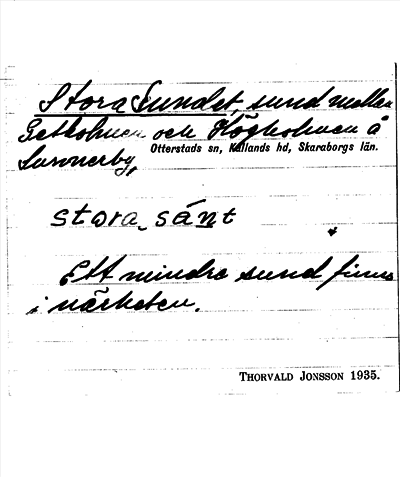 Stora Sundet, sund mellan
Getholmen och Högholmen å
Sunnerby,
Otterstads sn, Kållands hd, Skaraborgs län.
stora sánt
Ett mindre sund finns
i närheten.
THORVALD JONSSON 1935.